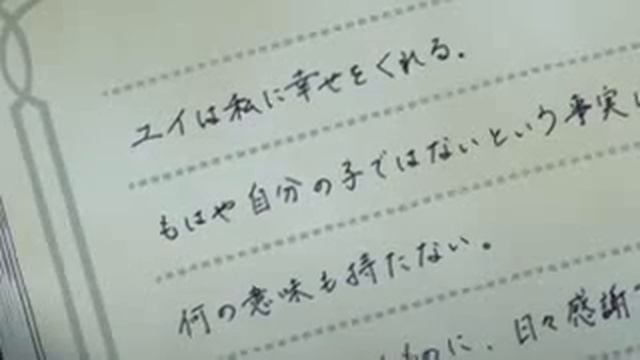 ユイは私に幸せをくれる。
もはや自分の子ではないという事実
何の意味も持たない。
ものに、日々感謝